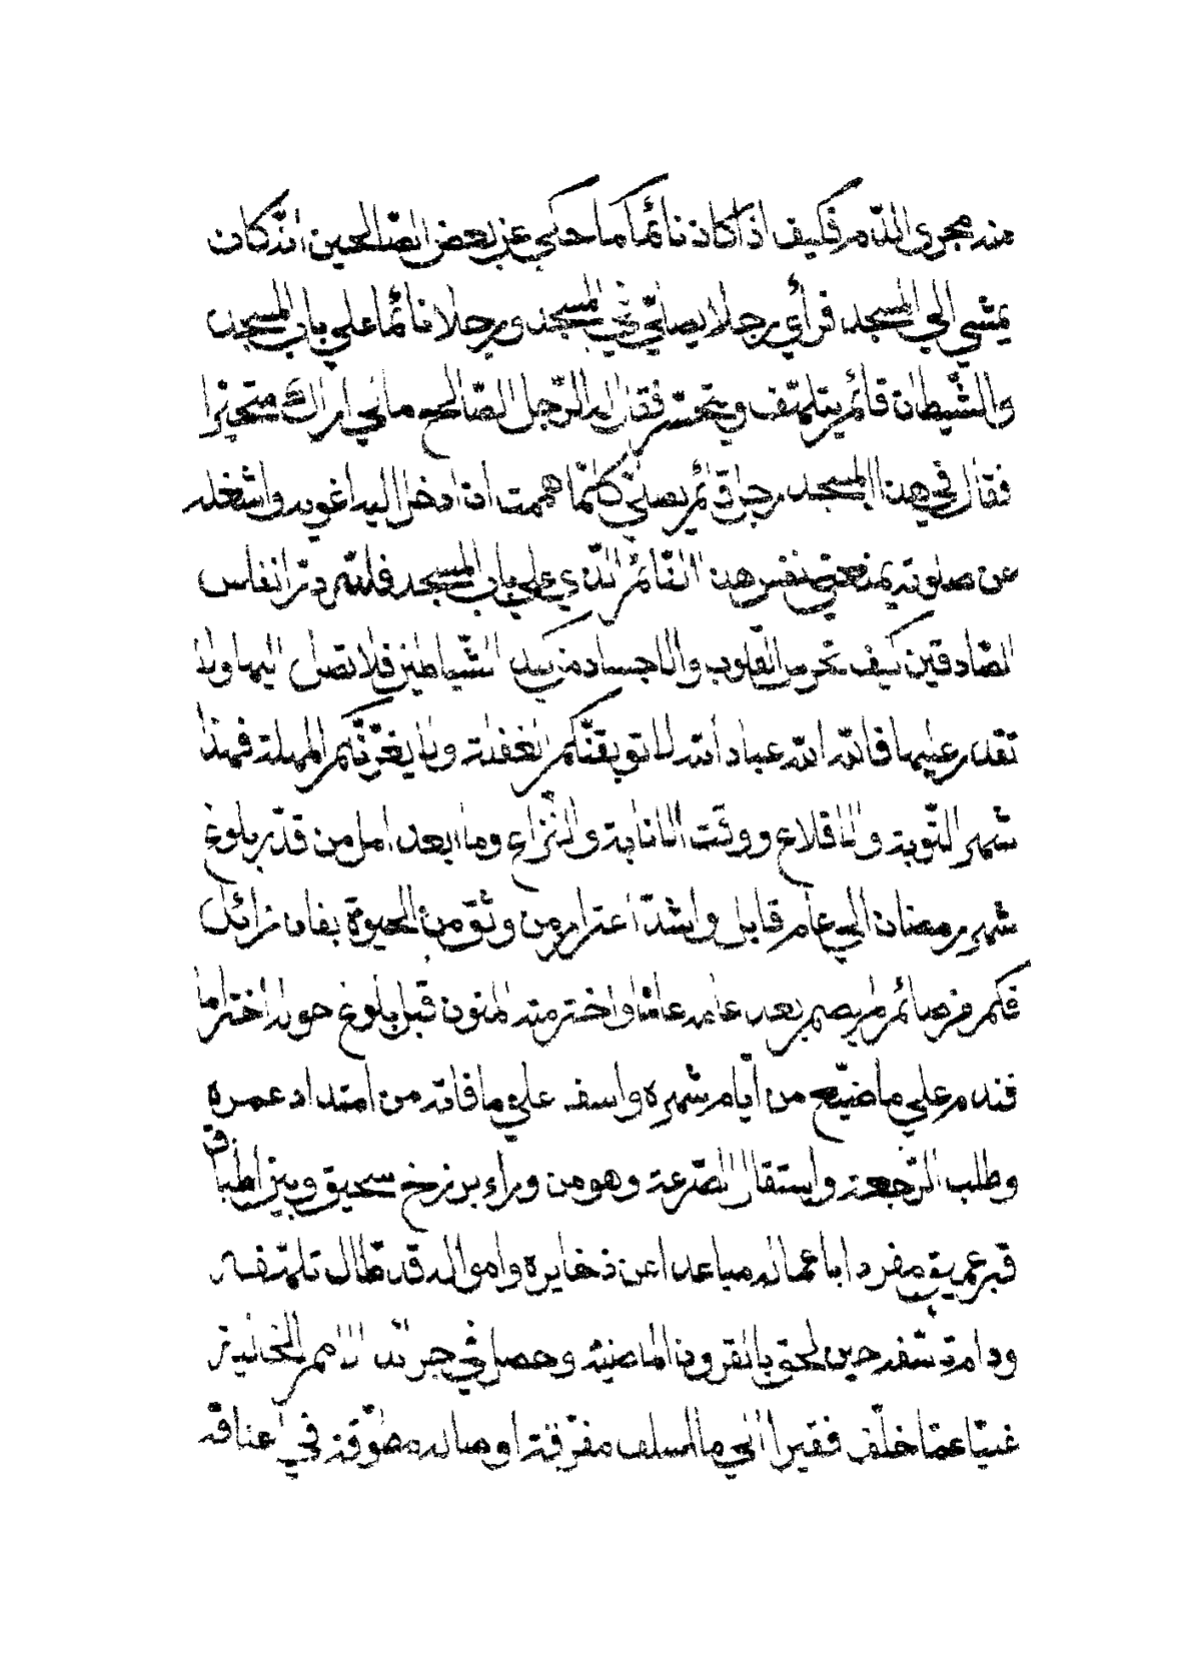 منه مجرى الدّم فكيف اذا كان نائمًا كما حكي عن بعض الصّالحين انّه كان
يمشي الي المسجد فرأي رجلا يصلّي في المسجد ورجلا نائمًا علي باب المسجد
والشّيطان قائم يتلهّف ويتحسّر فقال له الرّجل الصّالح مالي اراك متحيّرا
فقال في هذا المسجد رجل قائم يصلّي كلّما هممت ان ادخل اليه اغويه واشغله
عن صلوته يمنعني نفس هذا النّائم الّذي علي باب المسجد فللّه درّ انفاس
الصّادقين كيف تحرس القلوب والاجساد من كيد الشّياطين فلا تصل اليها ولا
تقدر عليها فاللّه اللّه عباد اللّه لا توبقنّكم الغفلة ولا يغرّنّكم المهلة فهذا
شهر التّوبة والاقلاع ووقت الانابة والنّزاع وما ابعد امل من قدّر بلوغ
شهر رمضان الي عام قابل واشدّ اغترار من وثق من الحيوة بفان زائل
فكم من صائم لم يصم بعد عامه عامًا واخترمته المنون قبل بلوغ حوله اختراما
فندم علي ما ضيّع من ايّام شهره واسف علي ما فاته من امتداد عمره
وطلب الرّجعة واستقال الصّرعة وهو من وراء برزخ سحيق وبين اطباق
قبر عميق مفردا باعماله مباعدا عن ذخايره وامواله قد طال تلهّفه
ودامت شقّته حين لحق بالقرون الماضية وحصل في الامم الخالية
غنيّا عمّا خلّف فقيرا الي ما اسلف مفرّقة اوصاله مطوّقة في اعناقه